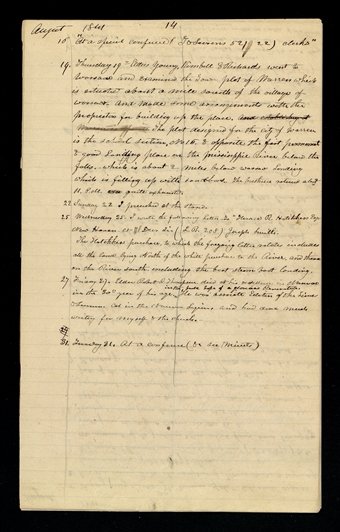 August 1841 14
16 "At a special conference (T&Seasons 521 & 22) clerks"
19. Thursday 19th Bros Young, Kimball & Richards went to
Warsaw and examine the Town plot of Warren which
is situated about a mile south of the village of
Warsaw, and made some arrangements with the
proprietor for building up the place.
The plot designed for the city of Warren
is the school section, No 16. & opposite the first permanent
& good landing place on the mississippi River below the
falls. which is about 2 miles below warsaw landing
which is filling up with sandbar. The business closed about
11. P.M. quite exhausted.
22 Sunday 22. I preached at the stand.
25 Wednesday 25. I wrote the following letter to "Horace R. Hotchkiss Esqr
New Haven
The Hotchkiss purchase, to which the foregoing letter relates includes
all the land lying North of the white purchase to the River, and thence
on the River south, including the best steam boat landing.
27 Friday 27. Elder Robert B. Thompson died at his residence in Nauvoo
in the 30th year of his age, in the full hope of a glorious Resurrection.
He was associate Editor of the Times
& Seasons Col. in the Nauvoo Legion and had done much
writing for myself & the church.
31. Tuesday 31. At a conference (T& see Minutes)